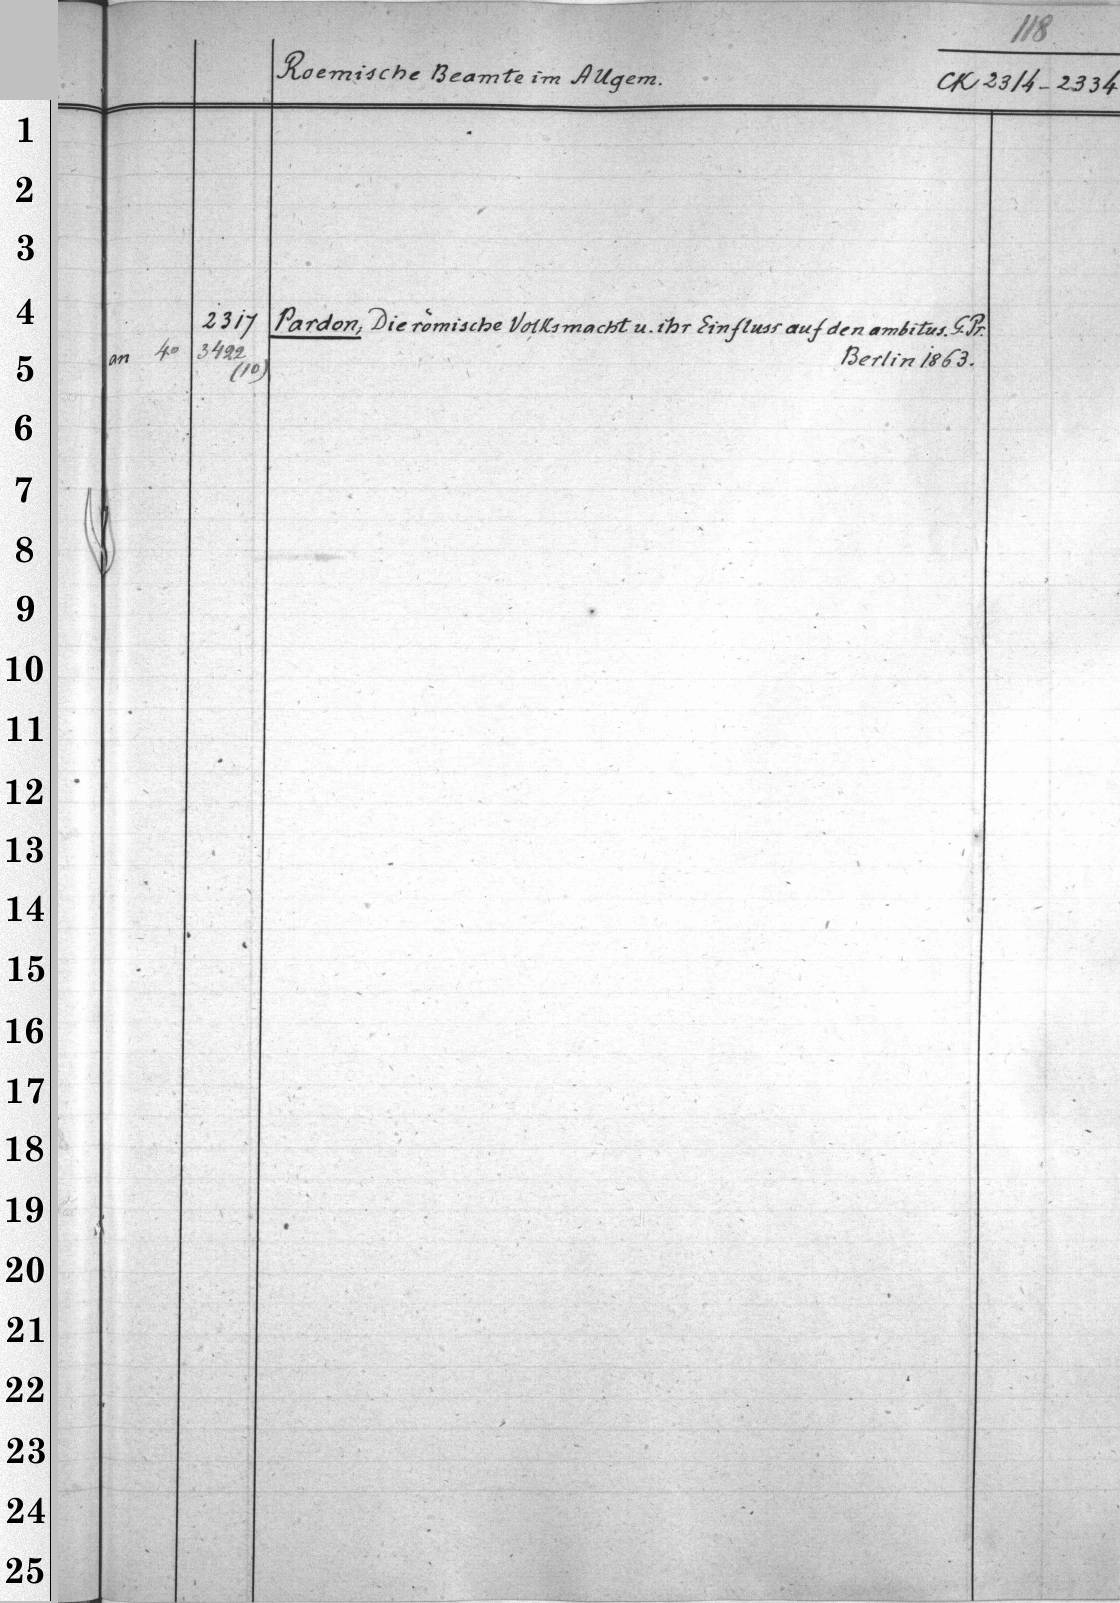 118
Roemische Beamte im Allgem.
CK 2314-2334
1
2
3
4
2317 Pardon, Die römische Volksmacht u. ihr Einfluss auf den ambitus. G. Pr.
an 4° 3422
Berlin 1863.
5
(10)
6
7
8
9
10
11
12
13
14
15
16
17
18
19
20
21
22
23
24
25